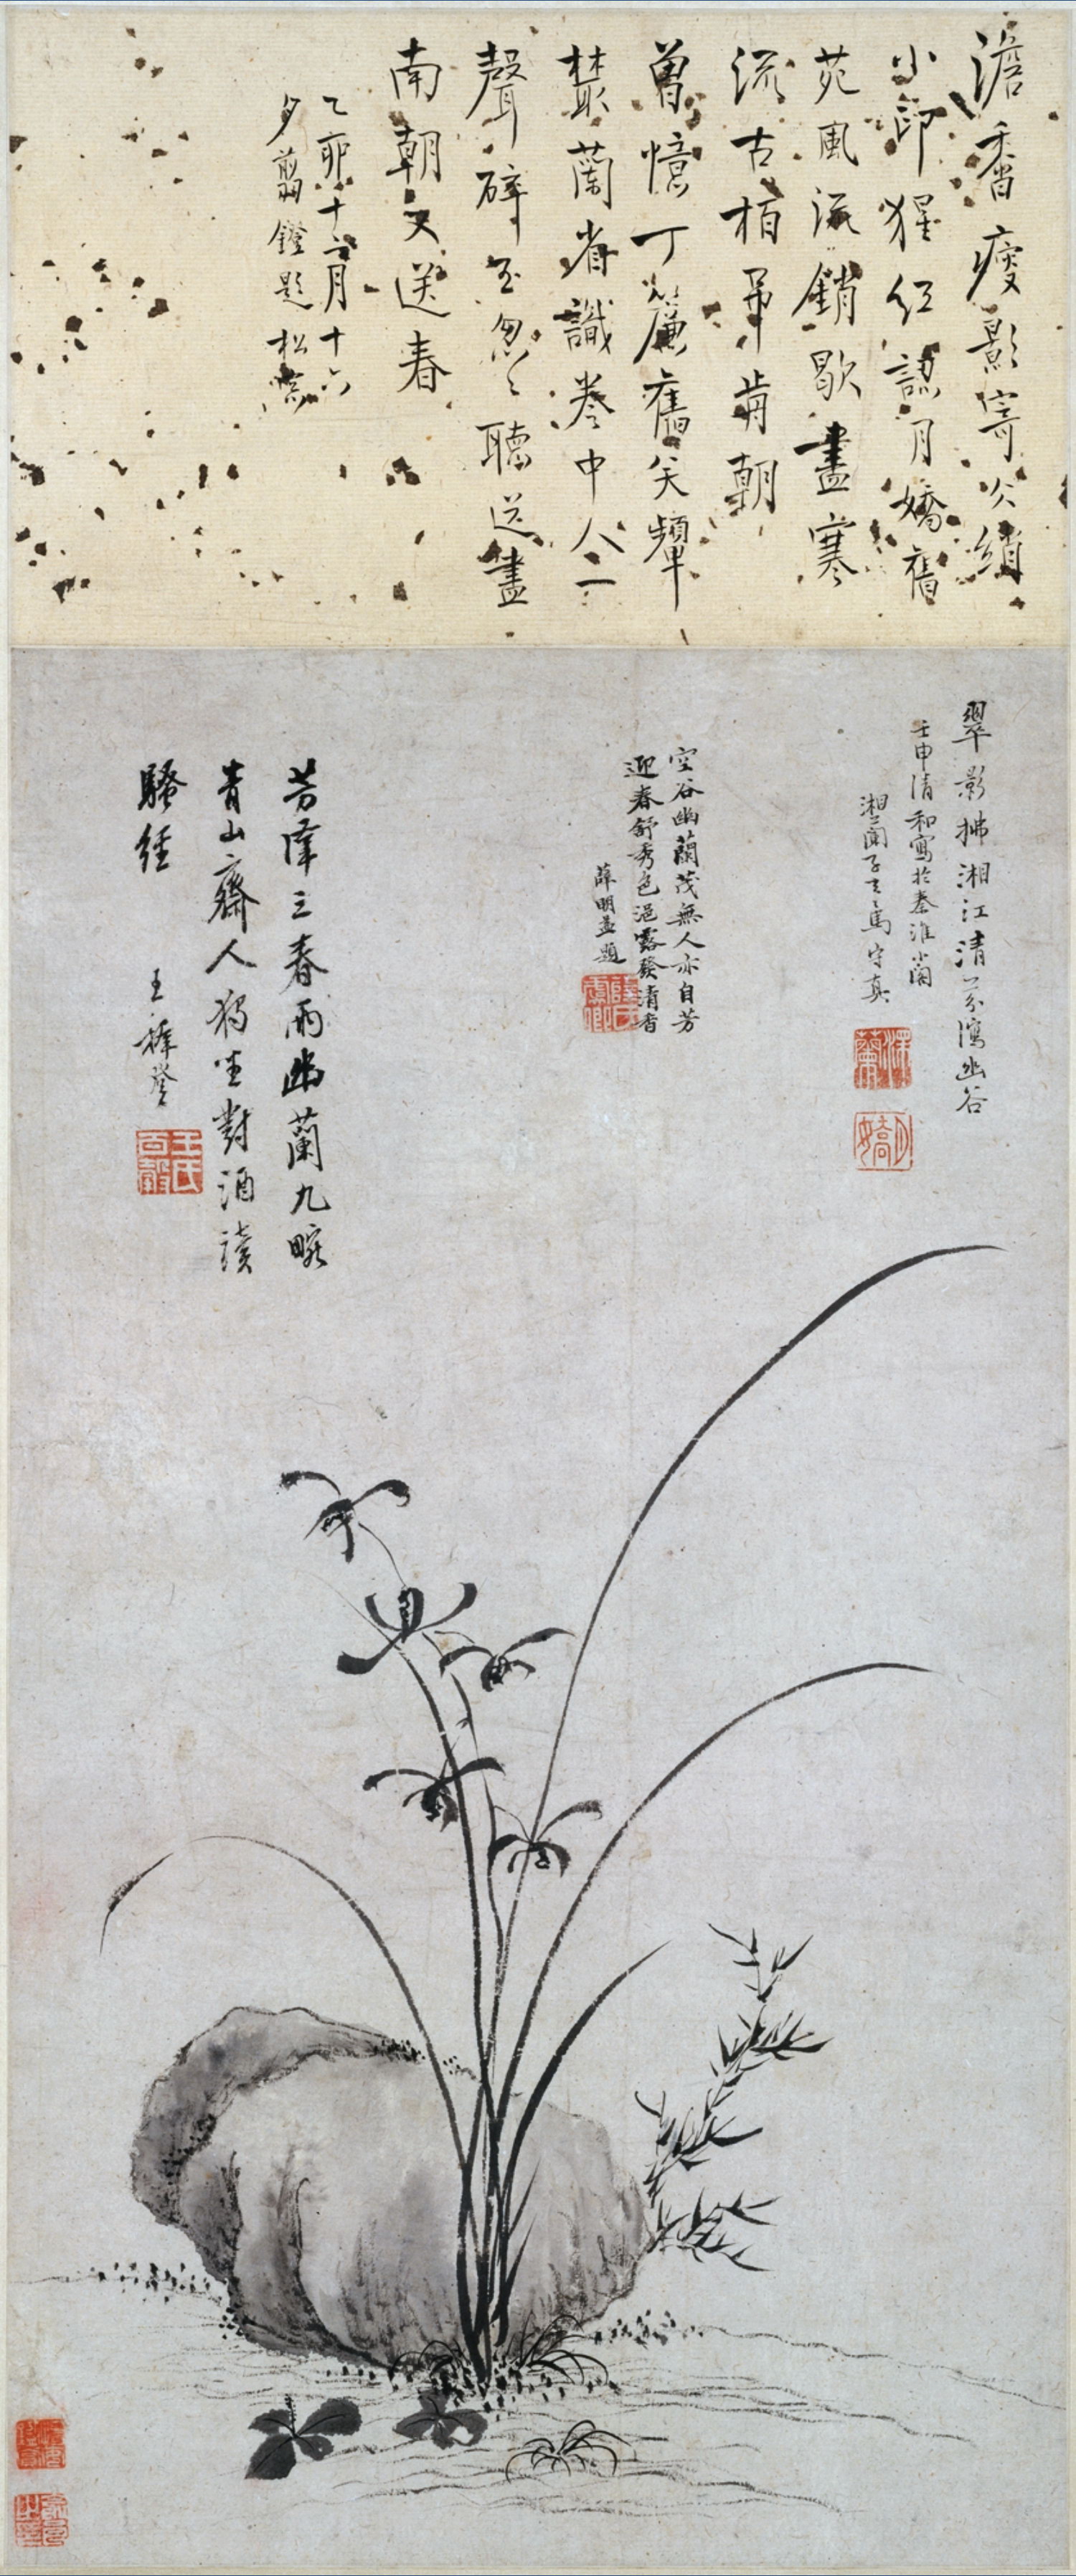 澹香瘦影寄冰綃
小印猩紅認月嬌舊
苑風流銷歇盡寒
流古柏弔前朝
曾憶丁簾舊笑顰
叢蘭省識卷中人一
聲碎玉忽忽聽送盡
南朝又送春
乙卯十二月十六
夕翦鐙題
翠影拂湘江清芬瀉幽谷
壬申清和寫於秦淮小閣
湘蘭子馬守真
空谷幽蘭茂無人亦自芳
迎春舒秀色浥露發清香
薛明益題
芳澤三春雨幽蘭九畹
青山齋人獨坐對酒讀
騷經
王穉登
王氏百穀